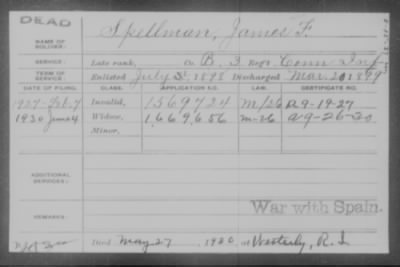 DEAD
NAME OF SOLDIER: Spellman, James F.
SERVICE: Late rank, Co. B, 3 Regt. Conn Inf
TERM OF SERVICE: Enlisted July 5 1898 Discharged Mar. 20 1899
DATE OF FILING. CLASS. APPLICATION NO. LAW. CERTIFICATE NO.
1927-Feb. 7 Invalid, 1569724 m/26 A 9-19-27
1930 June 4 Widow, 1669656 m-26 A 9-26-30
Minor,
ADDITIONAL SERVICES:
War with Spain.
REMARKS:
Died May 27, 1930 at Westerly, R. I.